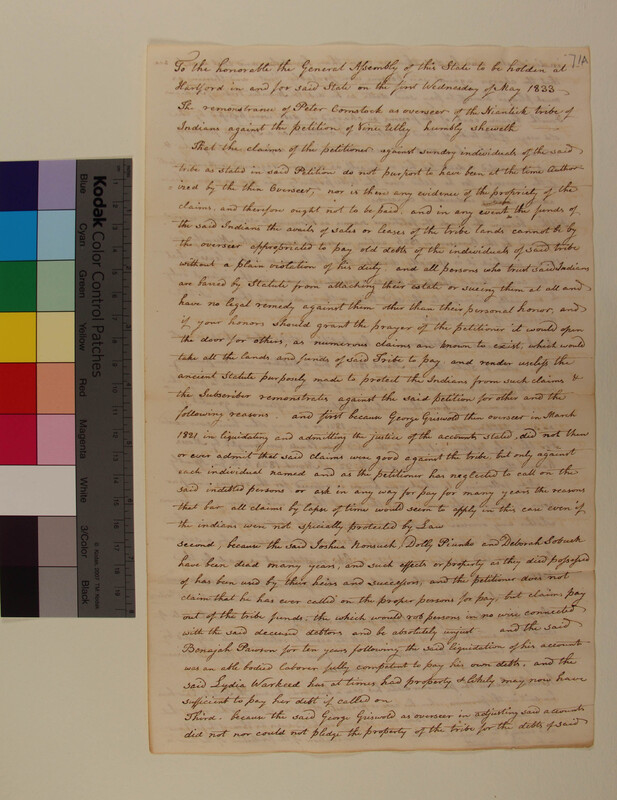 71A
To the honorable the General Assembly of this State to be holden at
Hartford in and for said State on the first Wednesday of May 1833
The remonstrance of Peter Comstock as overseer of the Niantick tribe of
Indians against the petition of Vine Utley humbly sheweth
That the claims of the petitioner against sundry individuals of the said
tribe as stated in said Petition do not purport to have been at the time Author-
ised by the then Overseer, nor is there any evidence of the propriety of the
claims, and therefore ought not to be paid, and in any event the funds of
the said Indians the avails of sales or leases of the tribe lands cannot be by
the overseer appropriated to pay old debts of the individuals of said tribe
without a plain violation of his duty and all persons who trust said Indians
are barred by Statute from attaching their estate or sueing them at all and
have no legal remedy against them other than their personal honor, and
if your honors should grant the prayer of the petitioner it would open
the door for others, as numerous claims are known to exist, which would
take all the lands and funds of said Tribe to pay and render useless the
ancient Statute purposely made to protect the Indians from such claims &
the Subscriber remonstrates against the said petition for other and the
following reasons and first because George Griswold then overseer in March
1821 in liquidating and admitting the justice of the accounts stated, did not then
or ever admit that said claims were good against the tribe but only against
each individual named and as the petitioner has neglected to call on the
said indebted persons or ask in any way for pay for many years the reasons
that bar all claims by lapse of time would seem to apply in this case even if
the indians were not specially protected by Law
second, because the said Joshua Nonsuch, Dolly Piunko and Deborah Sobuck
have been dead many years, and such effects or property as they died possessed
of has been used by their heirs and successors, and the petitioner does not
claim that he has ever called on the proper persons for pay, but claims pay
out of the tribe funds, the which would rob persons in no wise connected
with the said deceased debtors and be absolutely unjust and the said
Benajah Pawson for ten years following the said liquidation of his account
was an able bodied laborer fully competent to pay his own debts, and the
said Lydia Warkeed has at times had property & likely may now have
sufficient to pay her debt if called on
Third. because the said George Griswold as overseer in adjusting said accounts
did not nor could not pledge the property of the tribe for the debts of said
Kodak Color Control Patches
Blue
Cyan
Green
Yellow
Red
Magenta
White
3/Color
Black